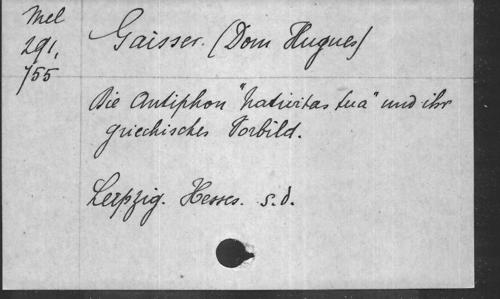 Mel
291,
755
Gaisser. (Dom Hugues)
Die Antiphon "Nativitas tua" und ihr
griechisches Vorbild.
Leipzig. Hesses. s.d.